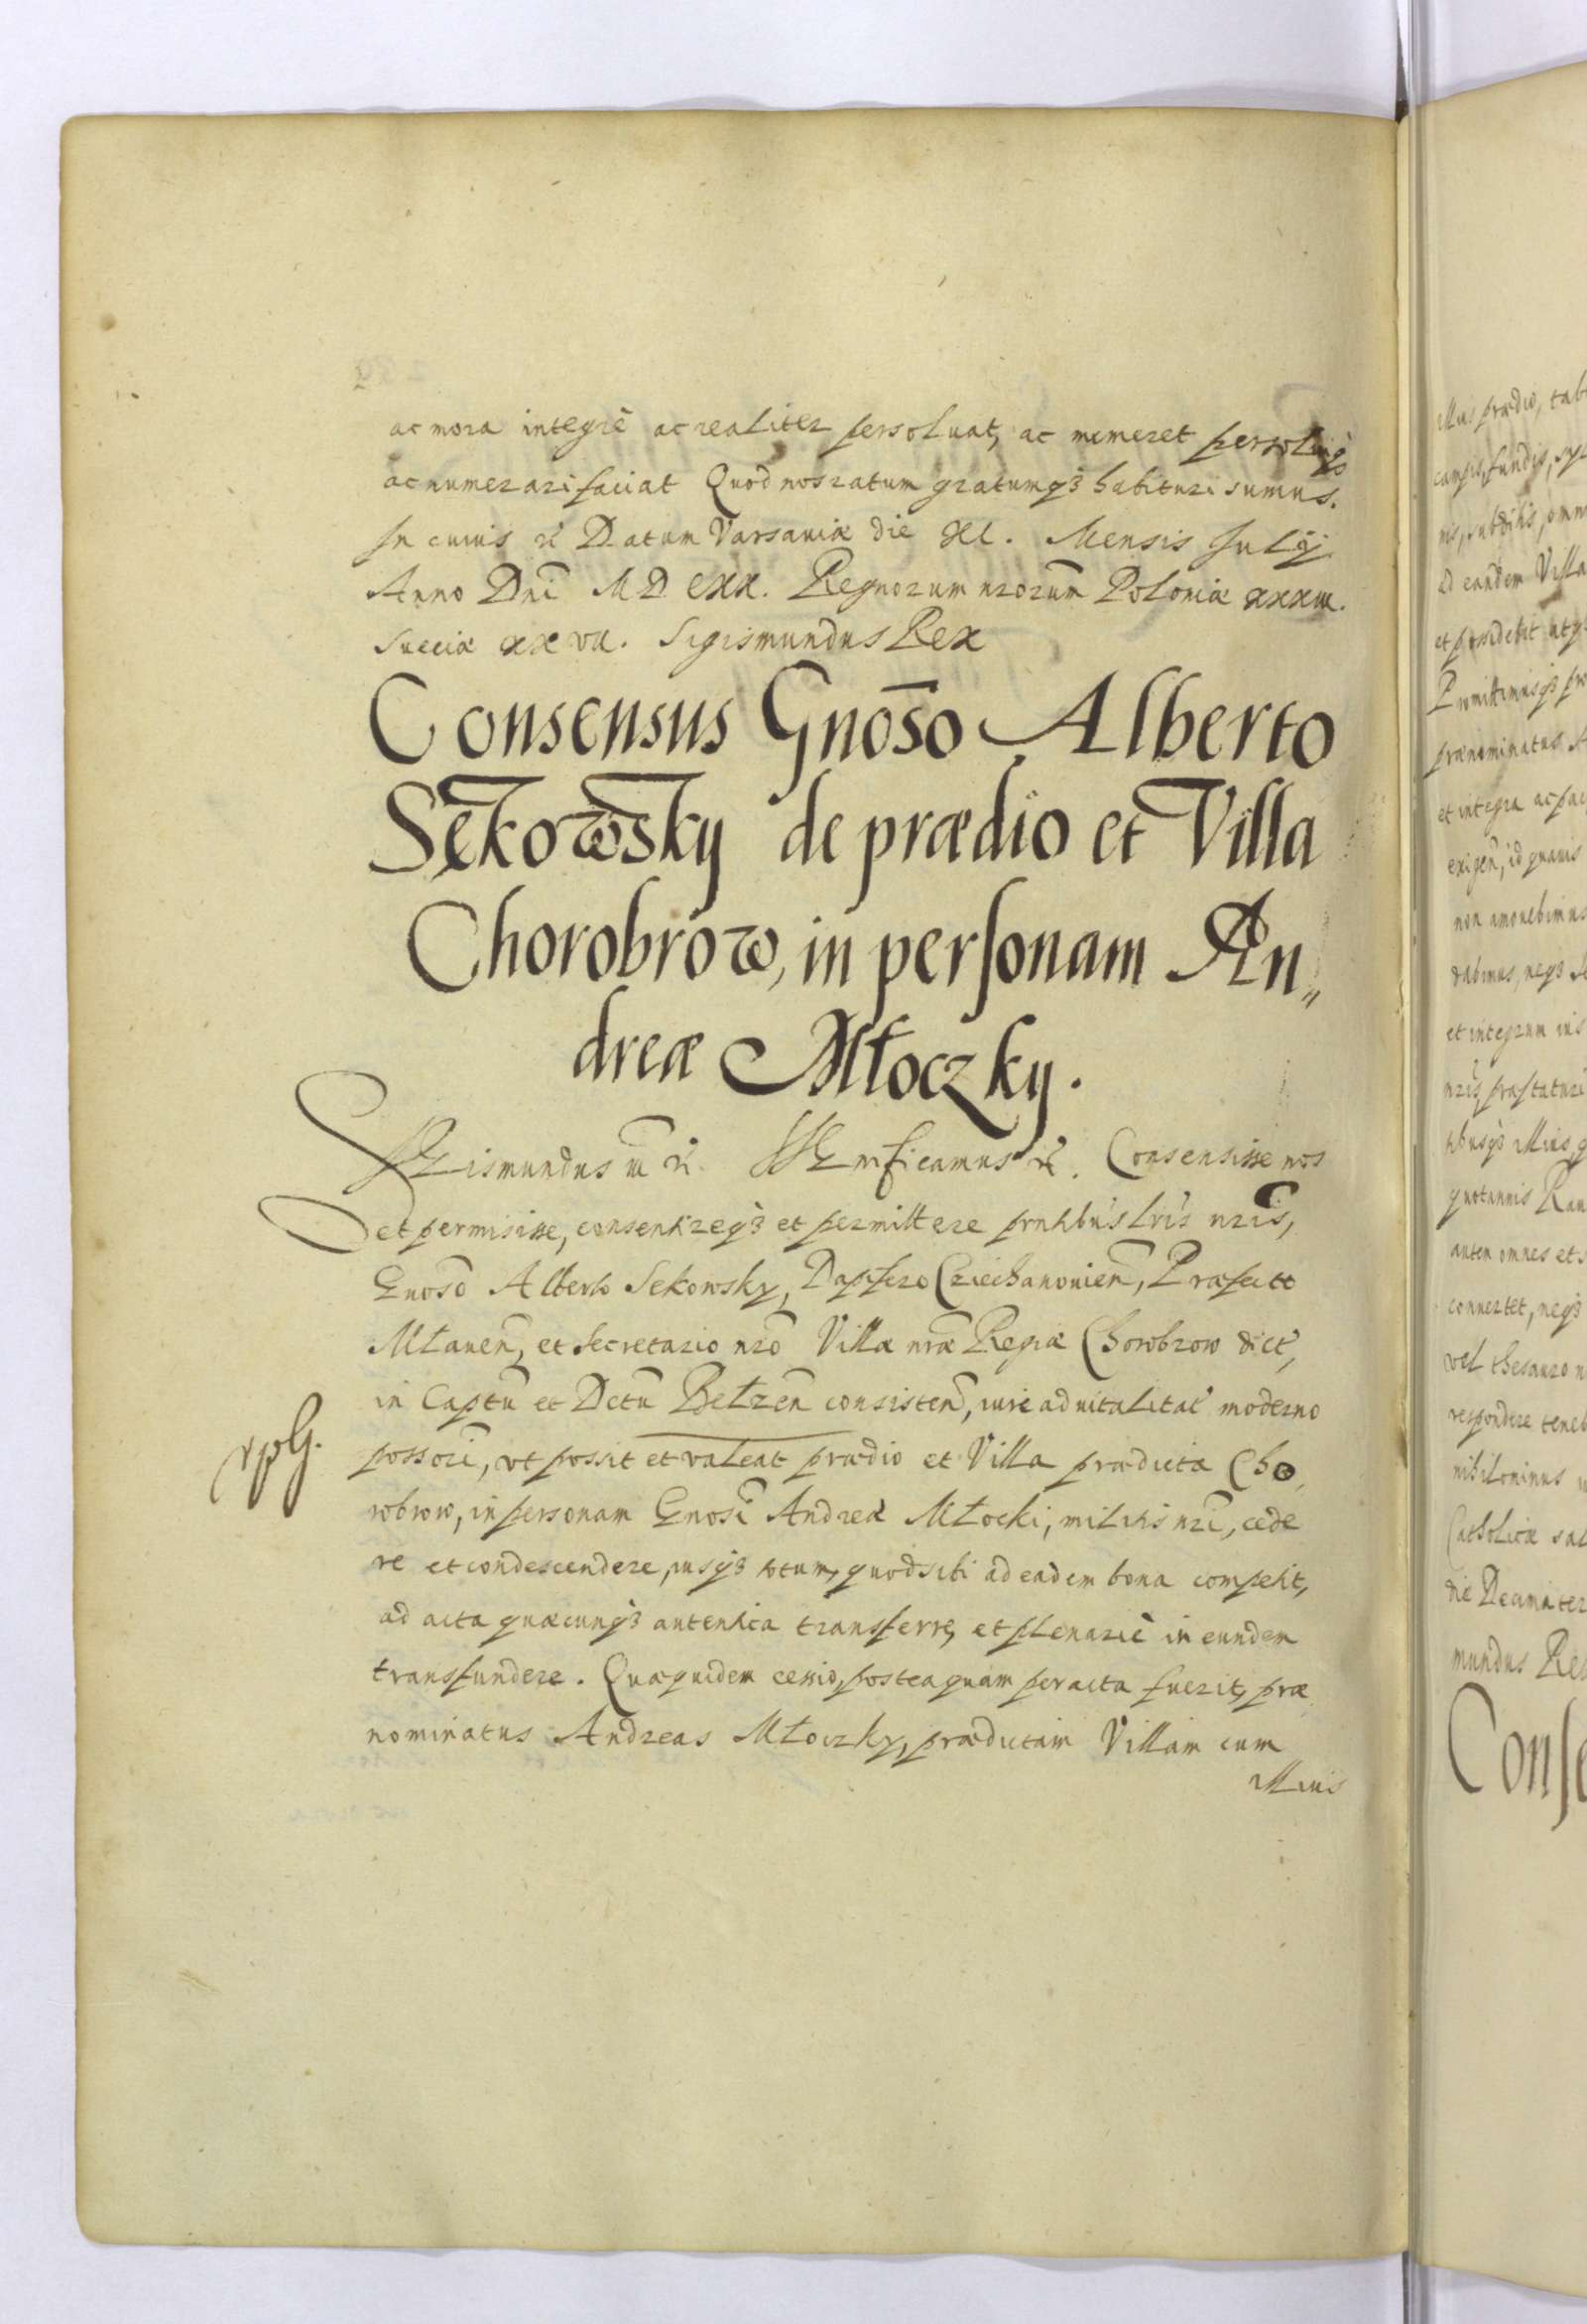 ac mora integrè ac realiter persoluat, ac numeret persoluiq3
ac numerari faciat Quod nos ratum gratumq3 habituri sumus.
In cuius rẽ Datum Varsauiæ die XI. Mensis Julij
Anno Dnĩ MDCXX. Regnorum nrorum Poloniæ xxxiii.
Sueciæ xxvii. Sigismundus Rex
Consensus Gnõso Alberto
Sękowsky de prædio et Villa
Chorobrow, in personam An„
dreæ Młoczky.
Sigismundus iii rẽ. Significamus rẽ. Consensisse nos
et permisisse, consentireq3 et permittere prntibus lris nris,
Gnoso Alberto Sekowsky, Dapifero Cziechanouien, Præfecto
Młauen, et Secretario nro Villæ nræ Regiæ Chorobrow dict,
in Captu et Dctu Belzen consisten, iure aduitalitat moderno
possori, vt possit et valeat prædio et Villa prædicta Cho
robrow, in personam Gnosi Andreæ Młocki, militis nri, cede
re et condescendere, iusq3 totum, quod sibi ad eadem bona competit,
ad acta quæcunq3 autentica transferre, et plenariè in eundem
transfundere. Quæquidem cessio, posteaquam peracta fuerit, præ
nominatus Andreas Młoczky, prædictam Villam cum
illius
illius prædio, tab
campis, fundis, syl
nis, subditis, omn
ad eandem Villa
et possidebit utq3
Promittimusq3 pro
prænominatus A
et integra ac pac
exigen, id quauis
non amouebimus
dabimus, neq3
et integrum ius
nris, præstaturi
tibusq3 illius, q
quotannis Rau
autem omnes et s
conuertet, neq3
vel thesauro n
respondere teneb
nihilominus
Catholicæ sal
die Decima ter
mundus Rex
Conse